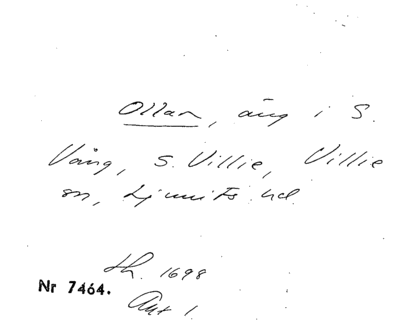 Ollan, äng i S.
Vång, S. Villie, Villie
sn, Ljunits hd.
Lh. 1698
Nr 7464.
Akt 1.